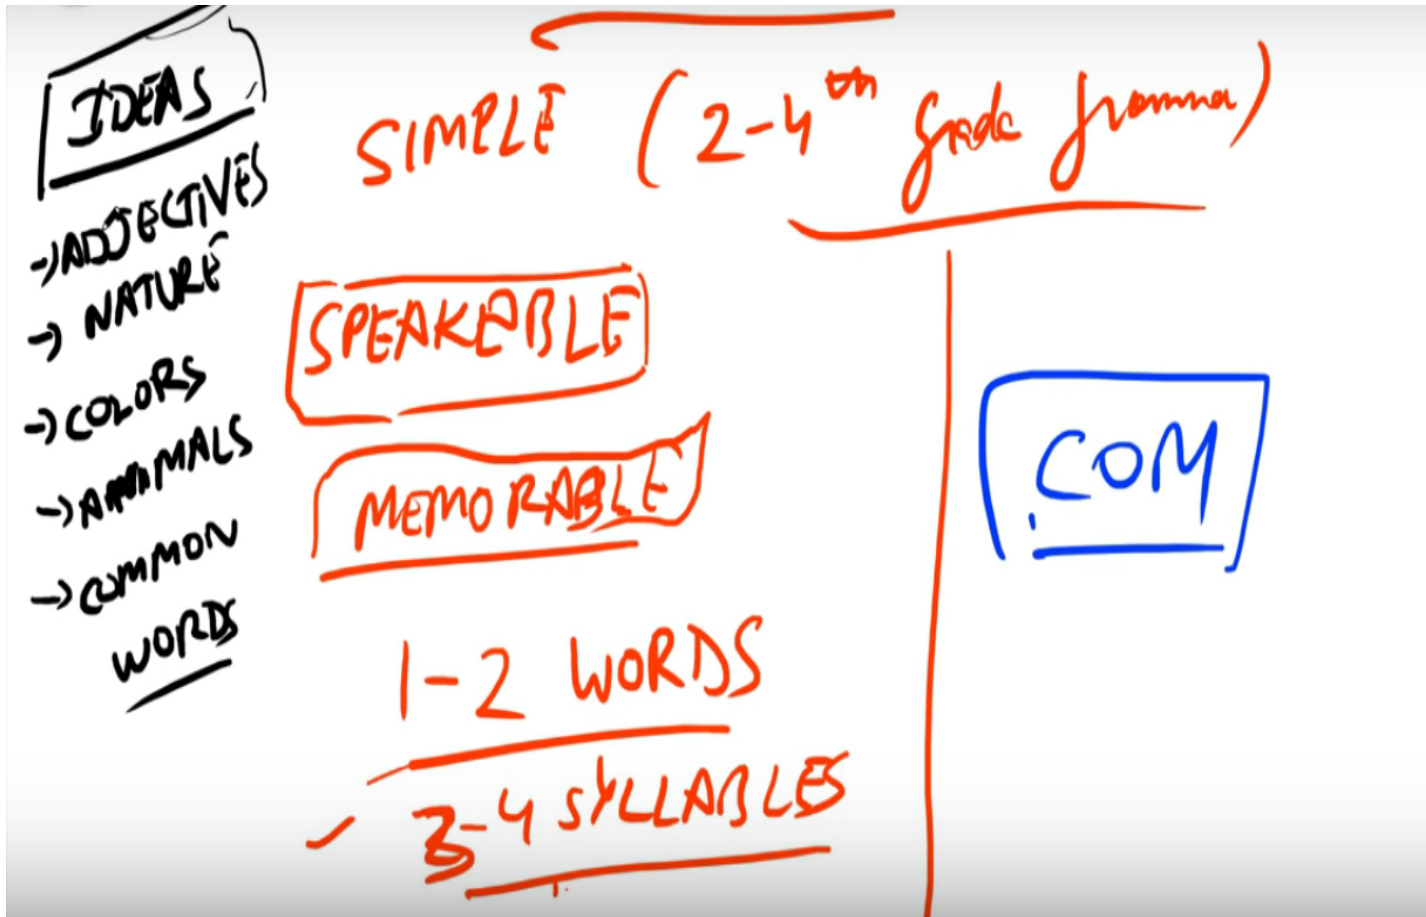 IDEAS
→ADJECTIVES
→ NATURE
→COLORS
→ANIMALS
→COMMON
WORDS
SIMPLE (2-4th grade gramma)
SPEAKEABLE
MEMORABLE
1-2 WORDS
3-4 SYLLABLES
.COM